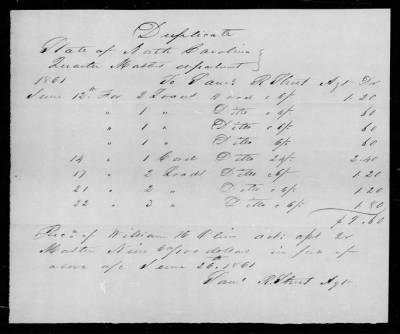 Duplicate
State of North Carolina
Quarter Masters department
1861 To Saml R Street Agt Dr
June 12th For 2 Loads Wood @ 6/ 1.20
" 1 " Ditto @ 6/ 60
" 1 " Ditto @ 6/ 60
" 1 " Ditto 6/ 60
14 " 1 Cord Ditto 24/ 2.40
17 " 2 Loads Ditto @ 6/ 1.20
21 " 2 " Ditto @ 6/ 1.20
22 " 3 " Ditto @ 6/ 1.80
$ 9.60
Recd of William H Oliver actg asst Qr
Master Nine 60/100 dollars in full of
above a/c June 26th 1861
Saml R. Street Agt